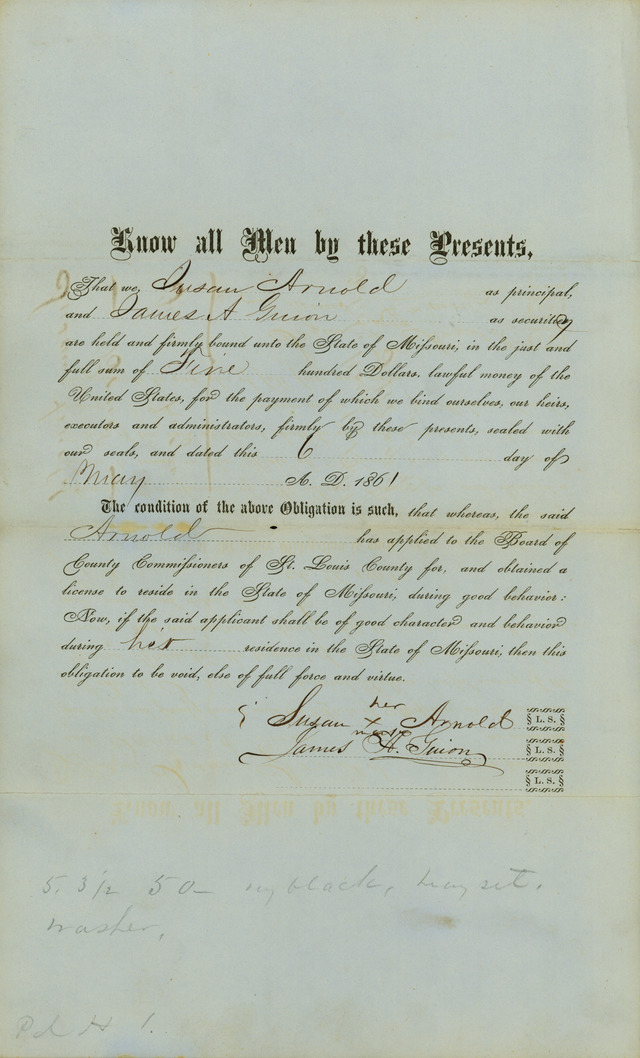 Know all Men by these Presents,
That we, Susan Arnold as principal,
and James A Guion as security
are held and firmly bound unto the State of Missouri, in the just and
full sum of Five hundred Dollars, lawful money of the
United States, for the payment of which we bind ourselves, our heirs,
executors and administrators, firmly by these presents, sealed with
our seals, and dated this 6 day of
May A. D. 1861
The condition of the above Obligation is such, that whereas, the said
Arnold has applied to the Board of
County Commissioners of St. Louis County for, and obtained a
license to reside in the State of Missouri, during good behavior:
Now, if the said applicant shall be of good character and behavior
during her residence in the State of Missouri, then this
obligation to be void, else of full force and virtue.
her
Susan x Arnold L. S.
mark
James A. Guion L. S.
L. S.
5. 3 1/2 50 black,
washer,